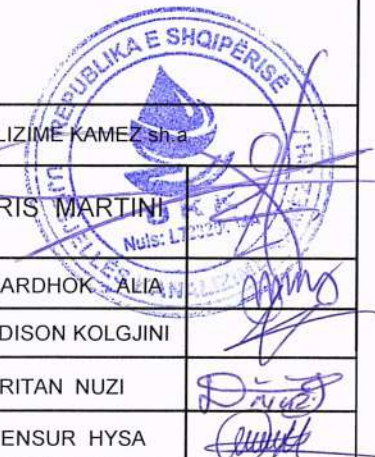 REPUBLIKA E SHQIPËRISË
LIZIME KAMEZ sh.a
RIS MARTINI
U K K
Nuis:
ARDHOK ALIA
DISON KOLGJINI
RITAN NUZI
ENSUR HYSA